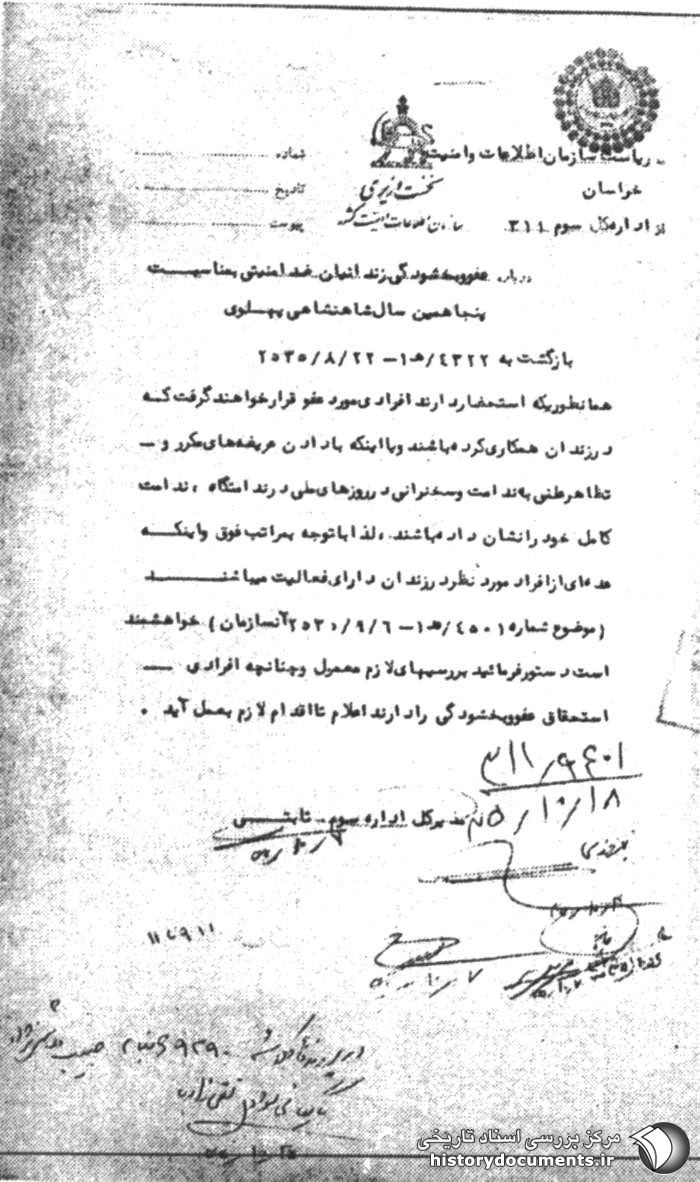 به ریاست سازمان اطلاعات و امنیت
خراسان
از اداره کل سوم ۳۱۱
نخست وزیری
سازمان اطلاعات و امنیت کشور
شماره
تاریخ
پیوست
درباره عفو و بخشودگی زندانیان ضد امنیتی بمناسبت
پنجاهمین سال شاهنشاهی پهلوی
بازگشت به ۴۳۲۲/ه‍۱-۲۵۳۵/۸/۲۲
همانطوریکه استحضار دارند افرادی مورد عفو قرار خواهند گرفت که
در زندان همکاری کرده باشند و یا اینکه با دادن عریضه‌های مکرر و
تظاهر علنی به ندامت و سخنرانی در روزهای ملی در ندامتگاه، ندامت
کامل خود را نشان داده باشند، لذا با توجه بمراتب فوق و اینکه
عده‌ای از افراد مورد نظر در زندان دارای فعالیت میباشند
(موضوع شماره ۴۵۰۱/ه‍۱-۲۵۳۵/۹/۶ آنسازمان) خواهشمند
است دستور فرمائید بررسیهای لازم معمول و چنانچه افرادی
استحقاق عفو و بخشودگی را دارند اعلام تا اقدام لازم بعمل آید.
۳۱۱/۹۴۰۱
۳۵/۱۰/۱۸
مدیر کل اداره سوم - ثابتی
۱۱۶۹۱۱
مرکز بررسی اسناد تاریخی
historydocuments.ir